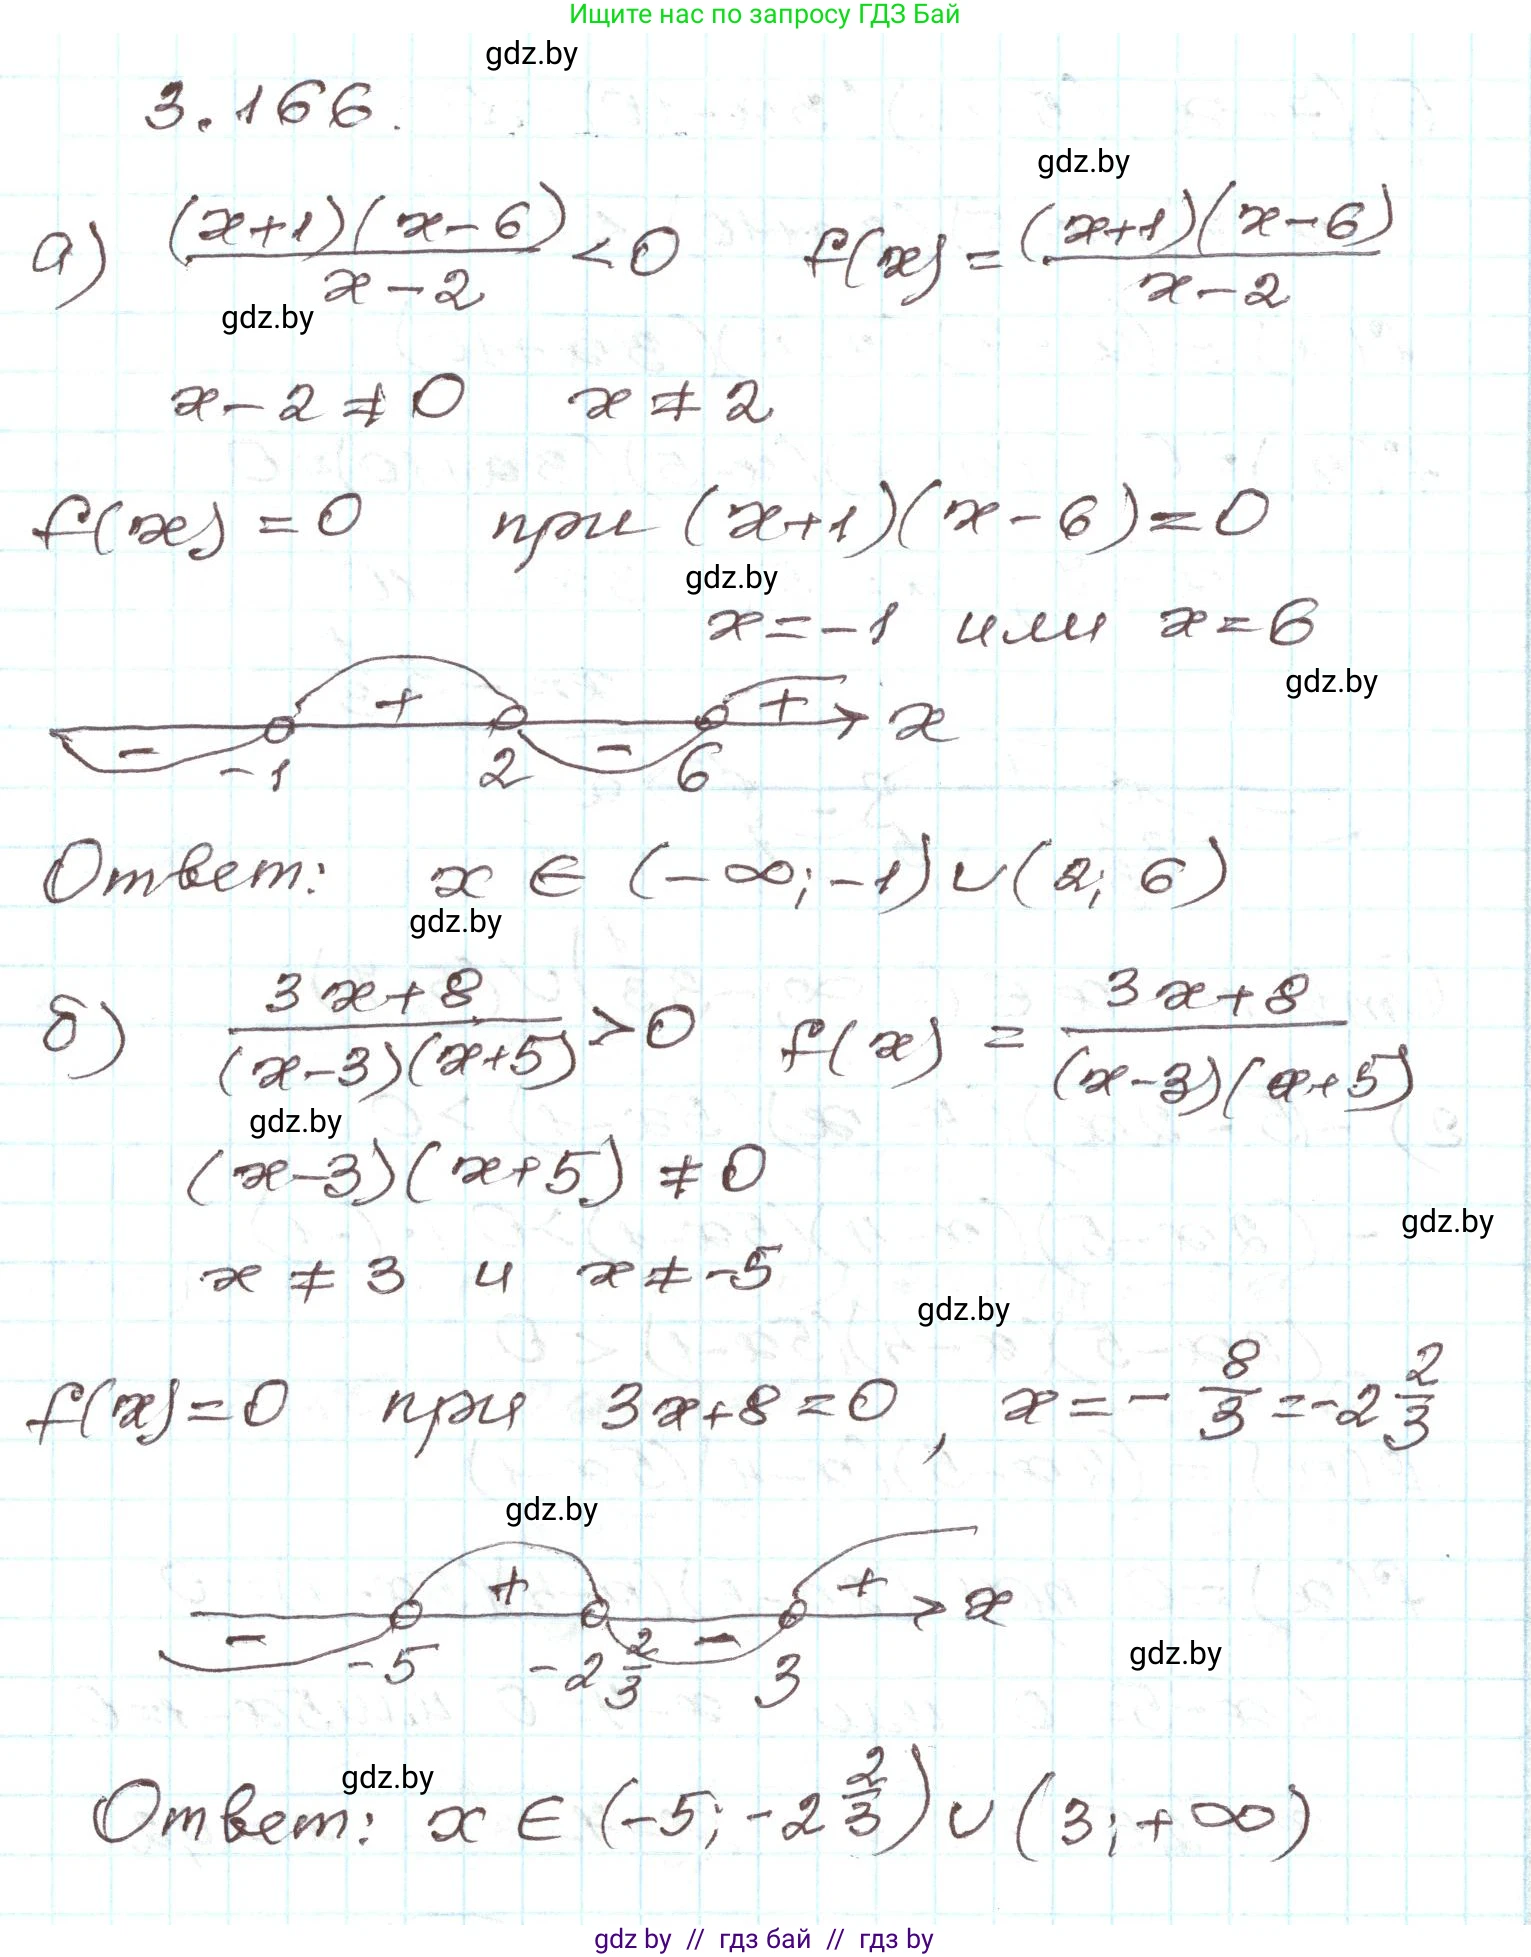 Ищите нас по запросу ГДЗ Бай
gdz.by
3.166.
gdz.by
а) (x+1)(x-6)/(x-2) < 0 f(x) = (x+1)(x-6)/(x-2)
gdz.by
x-2≠0 x≠2
f(x)=0 при (x+1)(x-6)=0
gdz.by
x=-1 или x=6
gdz.by
- + - + x
-1 2 6
Ответ: x ∈ (-∞; -1) ∪ (2; 6)
gdz.by
б) (3x+8)/((x-3)(x+5)) > 0 f(x) = (3x+8)/((x-3)(x+5))
gdz.by
(x-3)(x+5) ≠ 0
gdz.by
x ≠ 3 и x ≠ -5
gdz.by
f(x)=0 при 3x+8=0, x = -8/3 = -2 2/3
gdz.by
- + - + x
-5 -2 2/3 3
gdz.by
gdz.by
Ответ: x ∈ (-5; -2 2/3) ∪ (3; +∞)
gdz by // гдз бай // гдз by